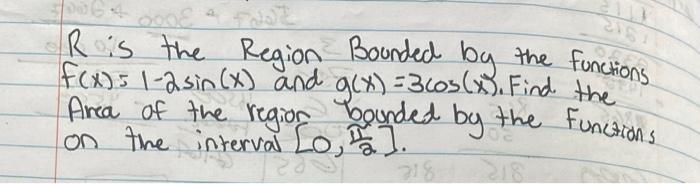 R is the Region Bounded by the functions
f(x)= 1-2sin(x) and g(x) =3cos(x). Find the
Area of the region bounded by the functions
on the interval [0, π/2].